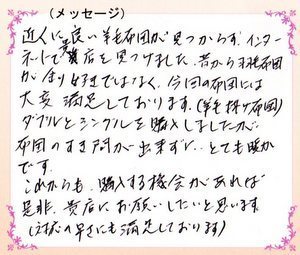 (メッセージ)
近くに良い羊毛布団が見つからず、インター
ネットで貴店を見つけました。昔から羽毛布団
が余り好きではなく、今回の布団には
大変満足しております。(羊毛掛け布団)
ダブルとシングルを購入しましたが
布団のすき間が出来ずに、とても暖か
です。
これからも、購入する機会があれば
是非、貴店にお願いしたいと思います。
(対応の早さにも満足しております)